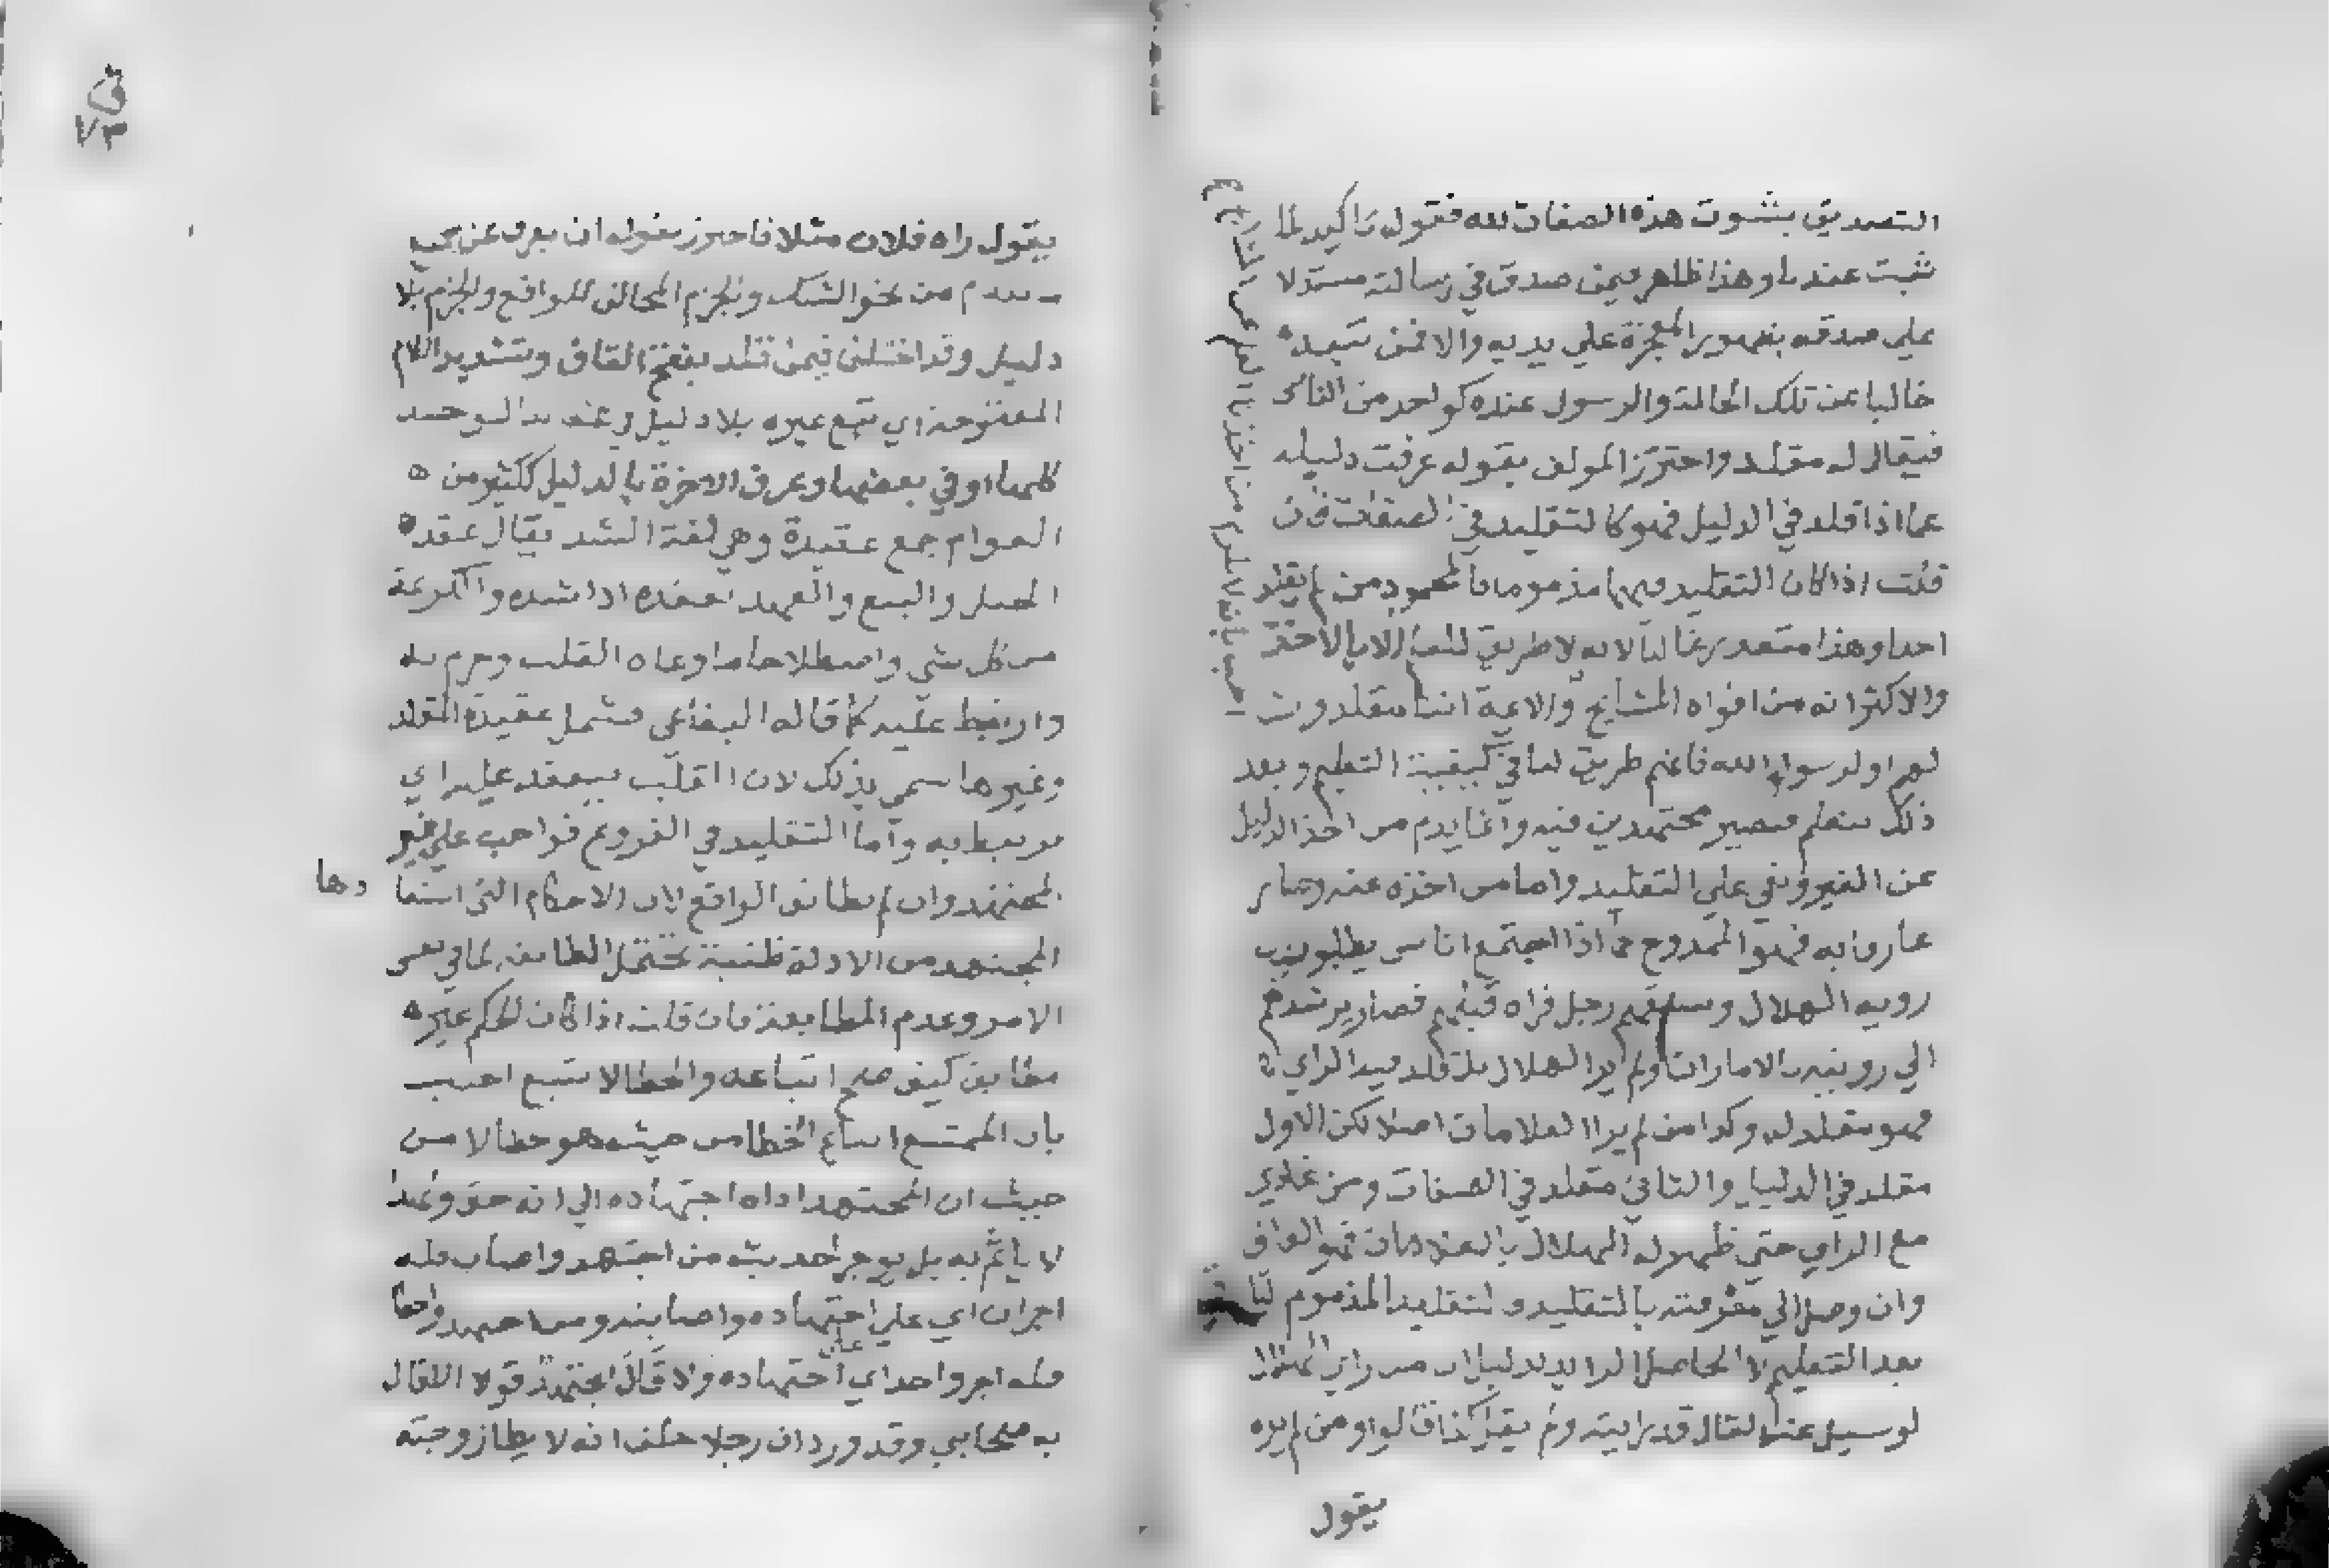 التصديق بثبوت هذه الصفات لله فقوله تاكيد لما
ثبت عندنا وهذا ظاهر فيمن صدق في رسالته مستدلا
علي صدقه بظهور المعجزة علي يديه والا فمن
خاليا عن تلك الحالة والرسول عنده كواحد من الناس
فيقال له مقلد واحترز المولف بقوله عرفت دليله
عما اذا قلد في الدليل فهو كالتقليد في الصفات فان
قلت اذا كان التقليد فيها مذموما فالمحمود من لم يقلد
احدا وهذا متعذر غالبا لانه لا طريق للعلم الا بالاخذ
والاكثر انه من افواه المشايخ والايمة اننا مقلدون
لهم او لرسول الله فانهم طريق لنا في كيفية التعليم وبعد
ذلك نتعلم فنصير مجتهدين فيه وانما يذم من اخذ الدليل
عن الغير وبقي علي التقليد واما من اخذه عنه وصار
عارفا به فهو الممدوح كما اذا اجتمع اناس يطلبون
روية الهلال وسبقهم رجل فراه قبلهم فصار يرشدهم
الي رويته بالامارات ولم ير الهلال بل قلد فيه الراي
فهو مقلد له وكذا من لم ير العلامات اصلا لكن الاول
مقلد في الدليل والثاني مقلد في الصفات ومن
مع الراي حتي ظهر له الهلال بالعلامات فهو العارف
وان وصل الي معرفته بالتقليد والتقليد المذموم
بعد التعليم لا الحاصل ابتداء بدليل ان من راي الهلال
لو سيل عنه لقال قد رايته ولم يقل كذا قالوا ومن لم يره
يقول
اجيب بانه لا يلزم من اخذنا العلم عن المشايخ
ق
٧٣
يقول راه فلان مثلا فاحترز بقوله ان يعرف عن جميع
ما تقدم من نحو الشك والجزم المخالف للواقع والجزم بلا
دليل وقد اختلف فيمن قلد بفتح القاف وتشديد اللام
المفتوحة اي تبع غيره بلا دليل في عقايد التوحيد
كلها او في بعضها وعرف الاخرة بالدليل ككثير من
العوام جمع عقيدة وهي لغة الشد يقال عقد
الحبل والبيع والعهد يعقده اذا شده والكريمة
من كل شي واصطلاحا ما وعاه القلب وجزم به
وارتبط عليه كما قاله البقاعي فشمل عقيدة المقلد
وغيرها سمي بذلك لان القلب ينعقد عليه اي
يرتبط به واما التقليد في الفروع فواجب علي غير
المجتهد وان لم يطابق الواقع لان الاحكام التي استفادها
المجتهد من الادلة ظنية تحتمل المطابقة لما في نفس
الامر وعدم المطابقة فان قلت اذا كان الحكم غير
مطابق كيف صح اتباعه والخطا لا يتبع اجيب
بان الممتنع اتباع الخطا من حيث هو خطا لا من
حيث ان المجتهد اداه اجتهاده الي انه حق ولهذا
لا ياثم به بل يوجر لحديث من اجتهد واصاب فله
اجران اي علي اجتهاده واصابته ومن اجتهد واخطا
فله اجر واحد اي علي اجتهاده ولا قال مجتهد قولا الا قال
به صحابي وقد ورد ان رجلا حلف انه لا يطا زوجته